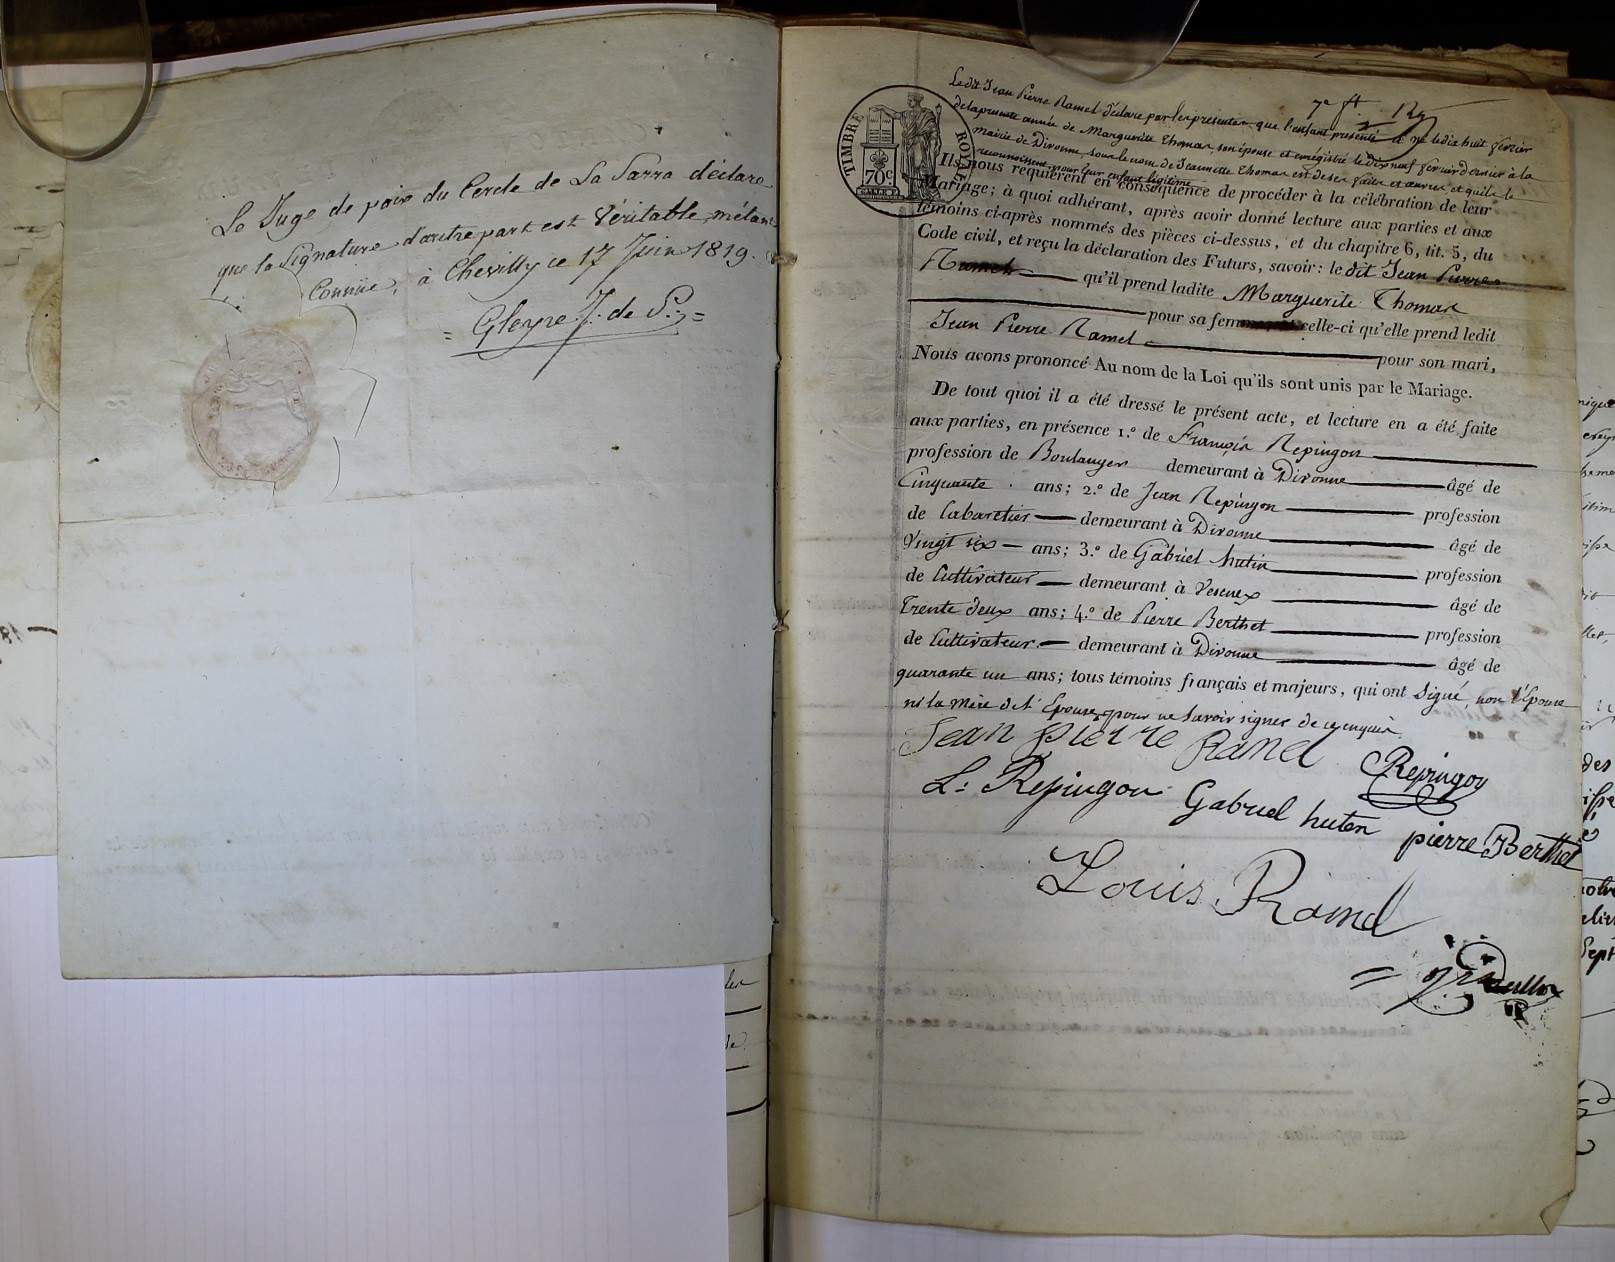 Le Juge de paix du Cercle de La Sarra déclare
que la Signature d'autre part est Véritable, m'étant
Connüe, à Chevilly ce 17 Juin 1819.
= Gleyre J. de P. =
7e ft
Ledit Jean Pierre Ramel déclare par les présentes que l'enfant présenté à le dix huit février
de la présente année de Marguerite Thomas son épouse et enrégistré le dix neuf fevrier dernier à la
mairie de Divonne, sous le nom de Jeannette Thomas est de ses faits et œuvres et qu'ils le
reconnoissent pour leur enfant légitime
TIMBRE ROYAL
70 c
Ils nous requièrent en conséquence de procéder à la célébration de leur
Mariage; à quoi adhérant, après avoir donné lecture aux parties et aux
témoins ci-après nommés des pièces ci-dessus, et du chapitre 6, tit. 5, du
Code civil, et reçu la déclaration des Futurs, savoir: le dit Jean Pierre
Ramel qu'il prend ladite Marguerite Thomas
pour sa femme celle-ci qu'elle prend ledit
Jean Pierre Ramel pour son mari,
Nous avons prononcé Au nom de la Loi qu'ils sont unis par le Mariage.
De tout quoi il a été dressé le présent acte, et lecture en a été faite
aux parties, en présence 1.º de François Repingon
profession de Boulanger demeurant à Divonne âgé de
Cinquante ans; 2.º de Jean Repingon profession
de Cabaretier demeurant à Divonne âgé de
Vingt six ans; 3.º de Gabriel Hutin profession
de Cultivateur demeurant à Vesenex âgé de
Trente deux ans; 4.º de Pierre Berthet profession
de Cultivateur demeurant à Divonne âgé de
quarante un ans; tous témoins français et majeurs, qui ont Signé, non l'Epouse
ni la Mère de l'Epouse, pour ne Savoir signer de ce enquis
Jean pierre Ramel
Repingon
L: Repingon Gabriel huten pierre Berthet
Louis Ramel